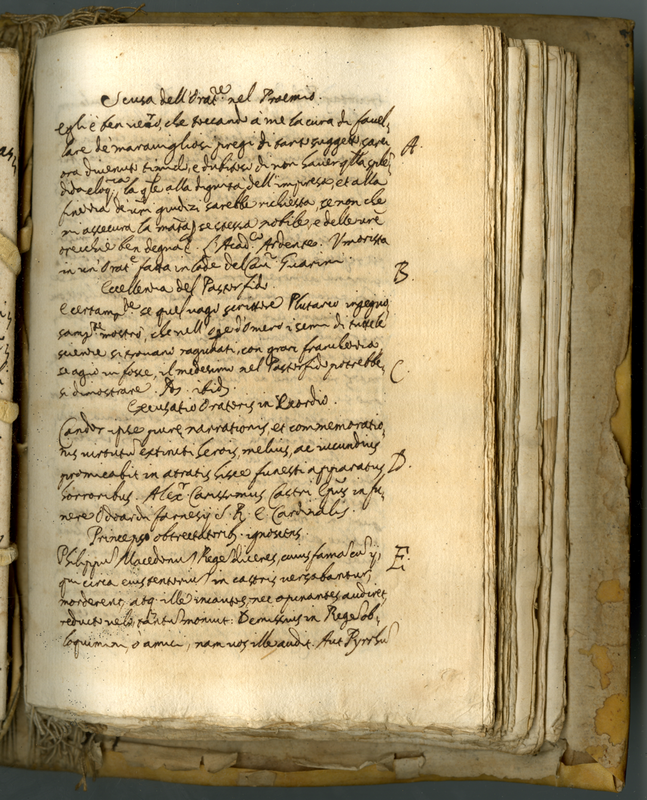 Scusa dell'Orat.re nel Proemio.
Egli è ben vero, che toccando à me la cura di favel,
lare de' maravigliosi pregi di tanto soggetto, sarei
ora divenuto timido, e dubitoso di non haver q.lla
d'eloq. la q.le alla dignità dell'impresa, et alla
de' giudizi sarebbe richiesta, se non che
mi assecura la mat.a se stessa nobile, e delle vre
orecchie ben degna. L'Acad.co Ardente. Umorista
in un' Orat.e fatta in lode del Guarini.
Eccellenza del Pastorfido.
E certam.te se quel vago scrittore Plutarco ingegno
sam.te mostrò, che nell' d'Omero i semi di tutte le
scienze si trovano ragunati, con gran franchezza,
se agio vi fosse, il medesimo nel Pastorfido potrebbe,
si dimostrare. ibid.
Excusatio Oratoris in Exordio.
Candor ipse purae narrationis, et commemoratio,
nis virtutu extincti herois, melius, ac iucundius
promicabit in atratis hisce funesti apparatus
horroribus. Alex.r Carissimus Castri in fu,
nere Odoardi Farnesij S. R. E. Cardinalis.
Princeps obtrectatorib. ignoscens.
Philippu Macedonu Rege diceres, cuius fama cu ij,
qui circa eius tentoriu in castris versabantur,
morderent, atq. ille incautos, nec opinantes audiret,
reducto velo, tantu monuit: Demissius in Rege ob,
loquimini, o amici, nam vos ille audit. Aut Pyrrhu
A.
B.
C.
D.
E.